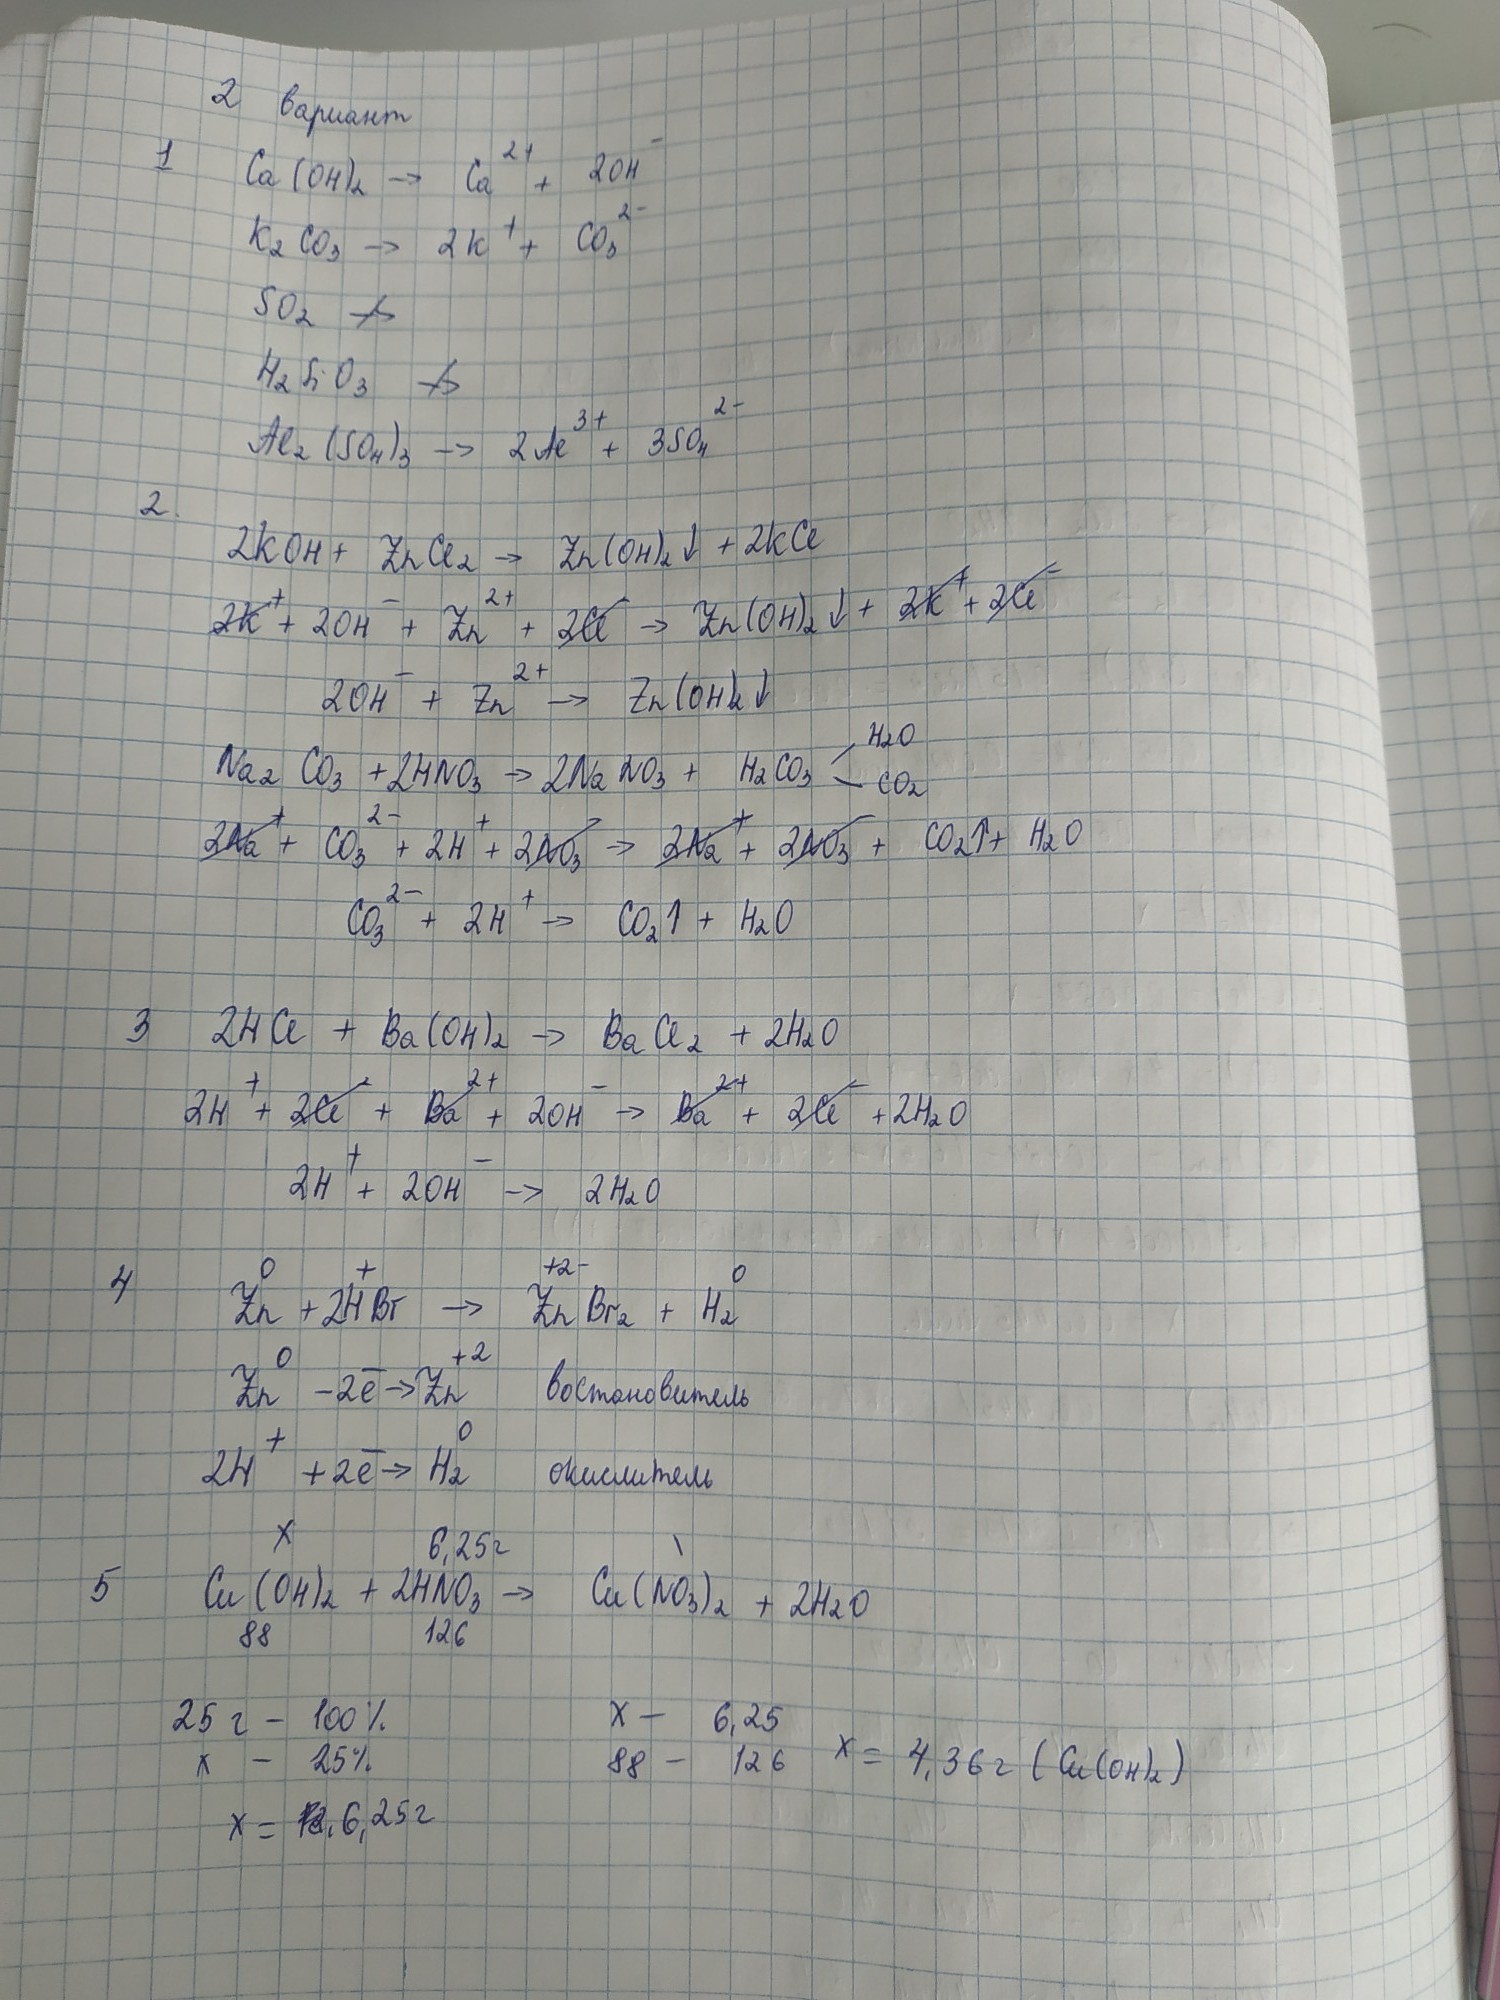 2 вариант
1 Ca(OH)₂ → Ca²⁺ + 2OH⁻
K₂CO₃ → 2K⁺ + CO₃²⁻
SO₂ ↛
H₂SiO₃ ↛
Al₂(SO₄)₃ → 2Al³⁺ + 3SO₄²⁻
2.
2KOH + ZnCl₂ → Zn(OH)₂↓ + 2KCl
2K⁺ + 2OH⁻ + Zn²⁺ + 2Cl⁻ → Zn(OH)₂↓ + 2K⁺ + 2Cl⁻
2OH⁻ + Zn²⁺ → Zn(OH)₂↓
Na₂CO₃ + 2HNO₃ → 2NaNO₃ + H₂CO₃ H₂O CO₂
2Na⁺ + CO₃²⁻ + 2H⁺ + 2NO₃⁻ → 2Na⁺ + 2NO₃⁻ + CO₂↑ + H₂O
CO₃²⁻ + 2H⁺ → CO₂↑ + H₂O
3 2HCl + Ba(OH)₂ → BaCl₂ + 2H₂O
2H⁺ + 2Cl⁻ + Ba²⁺ + 2OH⁻ → Ba²⁺ + 2Cl⁻ + 2H₂O
2H⁺ + 2OH⁻ → 2H₂O
0 + +2 - 0
4 Zn + 2HBr → ZnBr₂ + H₂
Zn⁰ - 2e̅ → Zn⁺² востановитель
2H⁺ + 2e̅ → H₂⁰ окислитель
x 6,25г
5 Cu(OH)₂ + 2HNO₃ → Cu(NO₃)₂ + 2H₂O
88 126
25г - 100% x - 6,25
x - 25% 88 - 126 x = 4,36г (Cu(OH)₂)
x = 6,25г